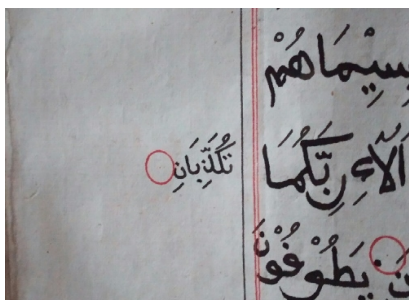 بِسِيْمَاهُمْ
اٰلَآءِ رَبِّكُمَا تُكَذِّبَانِ
يَطُوْفُوْنَ